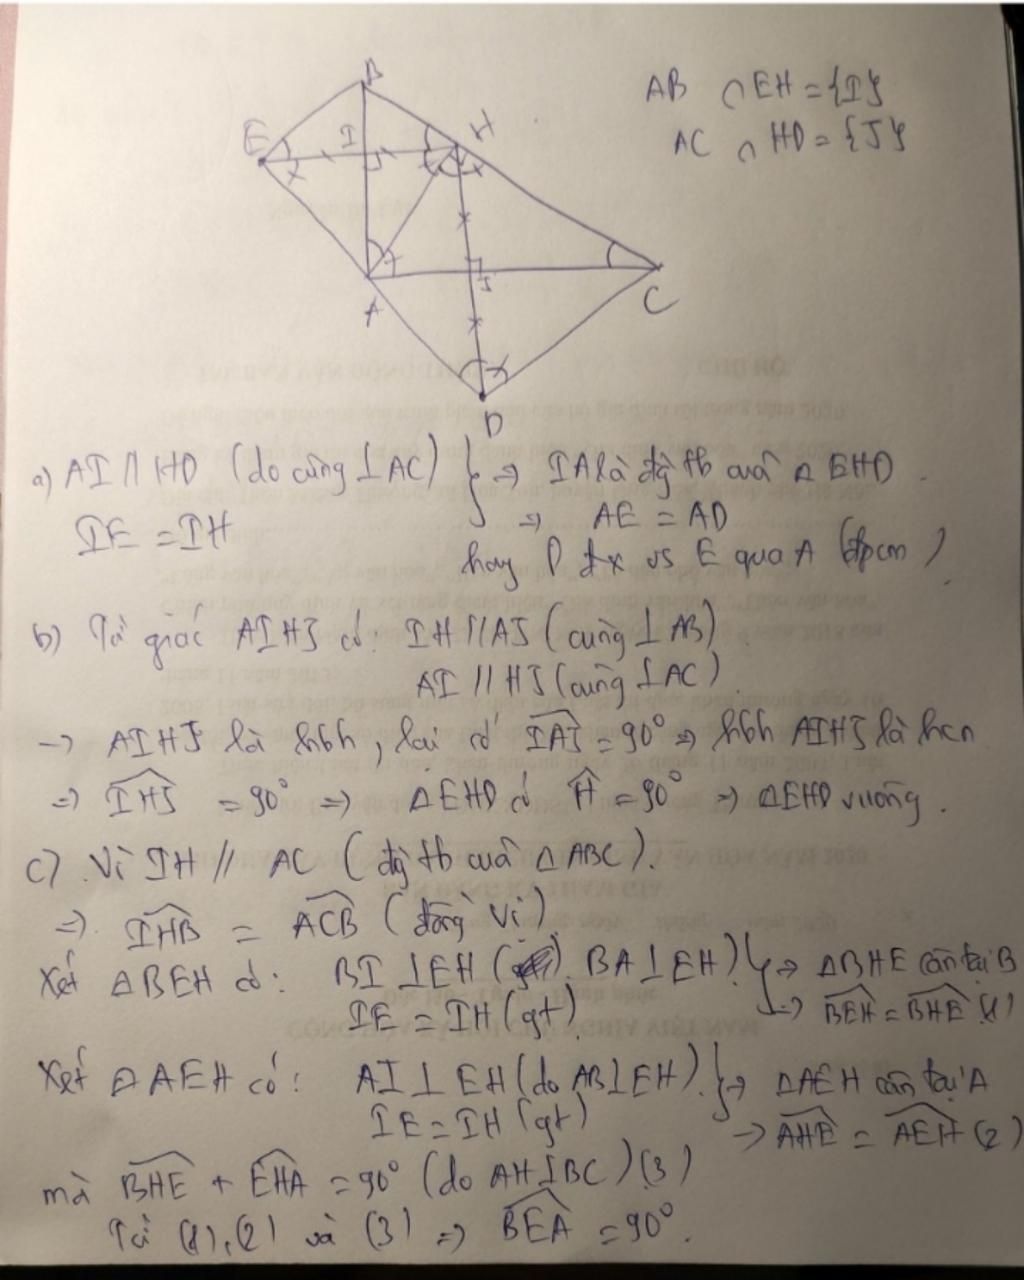 AB ∩ EH = {I}
AC ∩ HD = {J}
B
E
I
H
A
J
C
D
a) AI // HD (do cùng ⊥ AC) } => IA là đg tb cuả △ EHD.
IE = IH => AE = AD
hay D đx vs E qua A (đpcm)
b) Tứ giác AIHJ có: IH // AJ (cùng ⊥ AB)
AI // HJ (cùng ⊥ AC)
-> AIHJ là hbh, lại có IAJ = 90° => hbh AIHJ là hcn
=> IHJ = 90° => △EHD có H = 90° => △EHD vuông.
c) Vì IH // AC (đg tb cuả △ ABC).
=> IHB = ACB (đồng vị)
Xét △BEH có: BI ⊥ EH (BA ⊥ EH) } => △BHE cân tại B
IE = IH (gt) => BEH = BHE (1)
Xét △AEH có: AI ⊥ EH (do AB ⊥ EH) } -> △AEH cân tại A
IE = IH (gt) -> AHE = AEH (2)
mà BHE + EHA = 90° (do AH ⊥ BC) (3)
Từ (1), (2) và (3) => BEA = 90°.